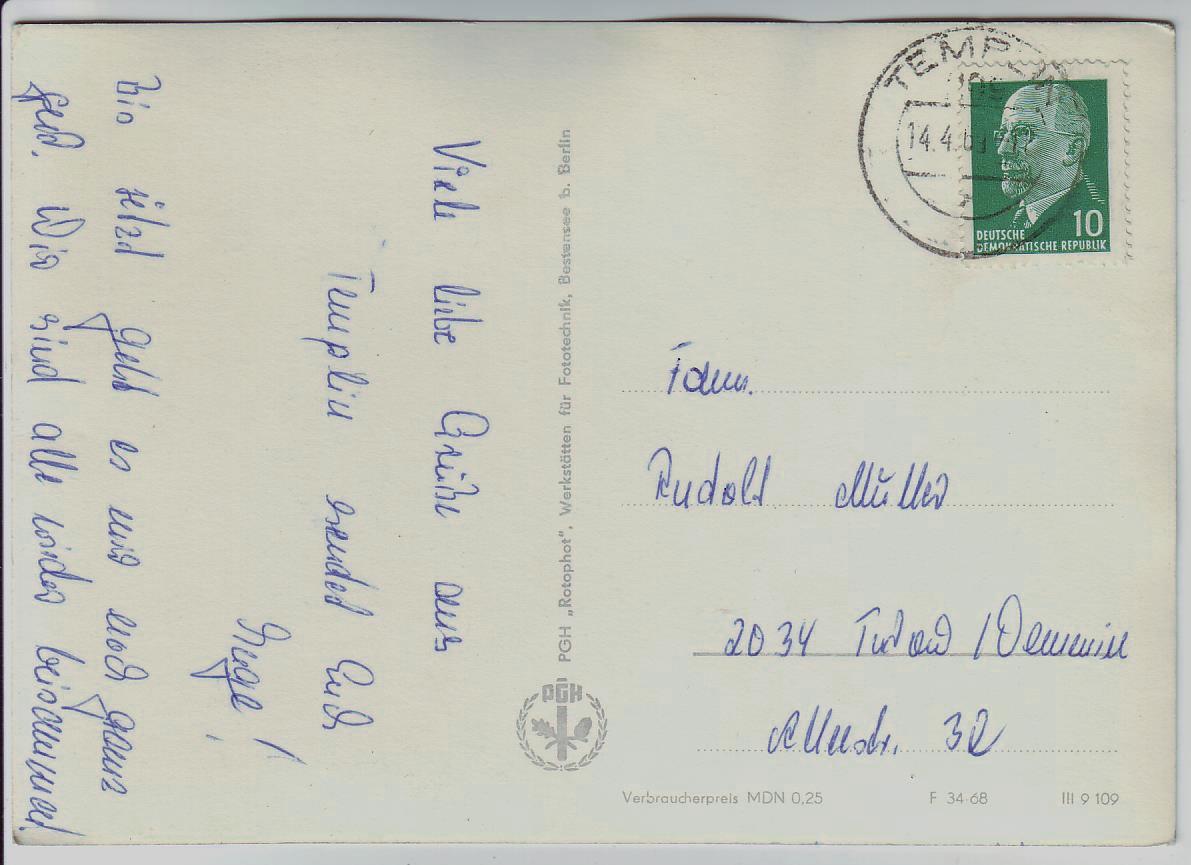 Viele liebe Grüße aus
Templin sendet Euch
Helga!
bis jetzt geht es mir noch ganz
gut. Wir sind alle wieder beisammen
PGH „Rotophot“, Werkstätten für Fototechnik, Bestensee b. Berlin
PGH
TEMPLIN
14.4.69
10
DEUTSCHE
DEMOKRATISCHE REPUBLIK
Fam.
Rudolf Müller
2034 Tutow / Demmin
Allestr. 32
Verbraucherpreis MDN 0,25 F 34-68 III 9 109